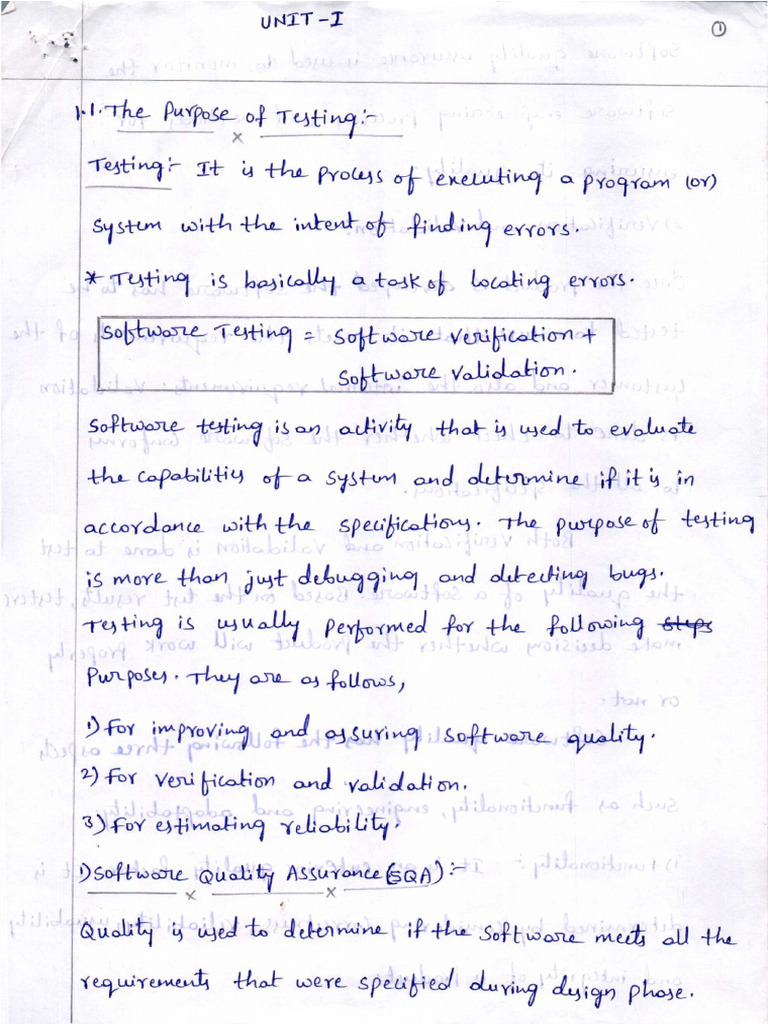 UNIT-I
1
1.1. The Purpose of Testing:-
Testing:- It is the process of executing a program (or)
system with the intent of finding errors.
* Testing is basically a task of locating errors.
Software Testing = Software verification +
Software validation.
Software testing is an activity that is used to evaluate
the capabilities of a system and determine if it is in
accordance with the specifications. The purpose of testing
is more than just debugging and detecting bugs.
Testing is usually performed for the following steps
purposes. They are as follows,
1) For improving and assuring software quality.
2) For verification and validation.
3) For estimating reliability.
1) Software Quality Assurance (SQA):-
Quality is used to determine if the software meets all the
requirements that were specified during design phase.